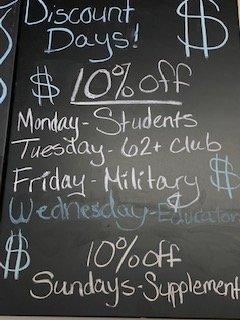 Discount
Days!
$
$ 10% off
Monday - Students
Tuesday - 62+ Club
Friday - Military $
$
Wednesday - Educators
$ 10% off
Sundays - Supplement